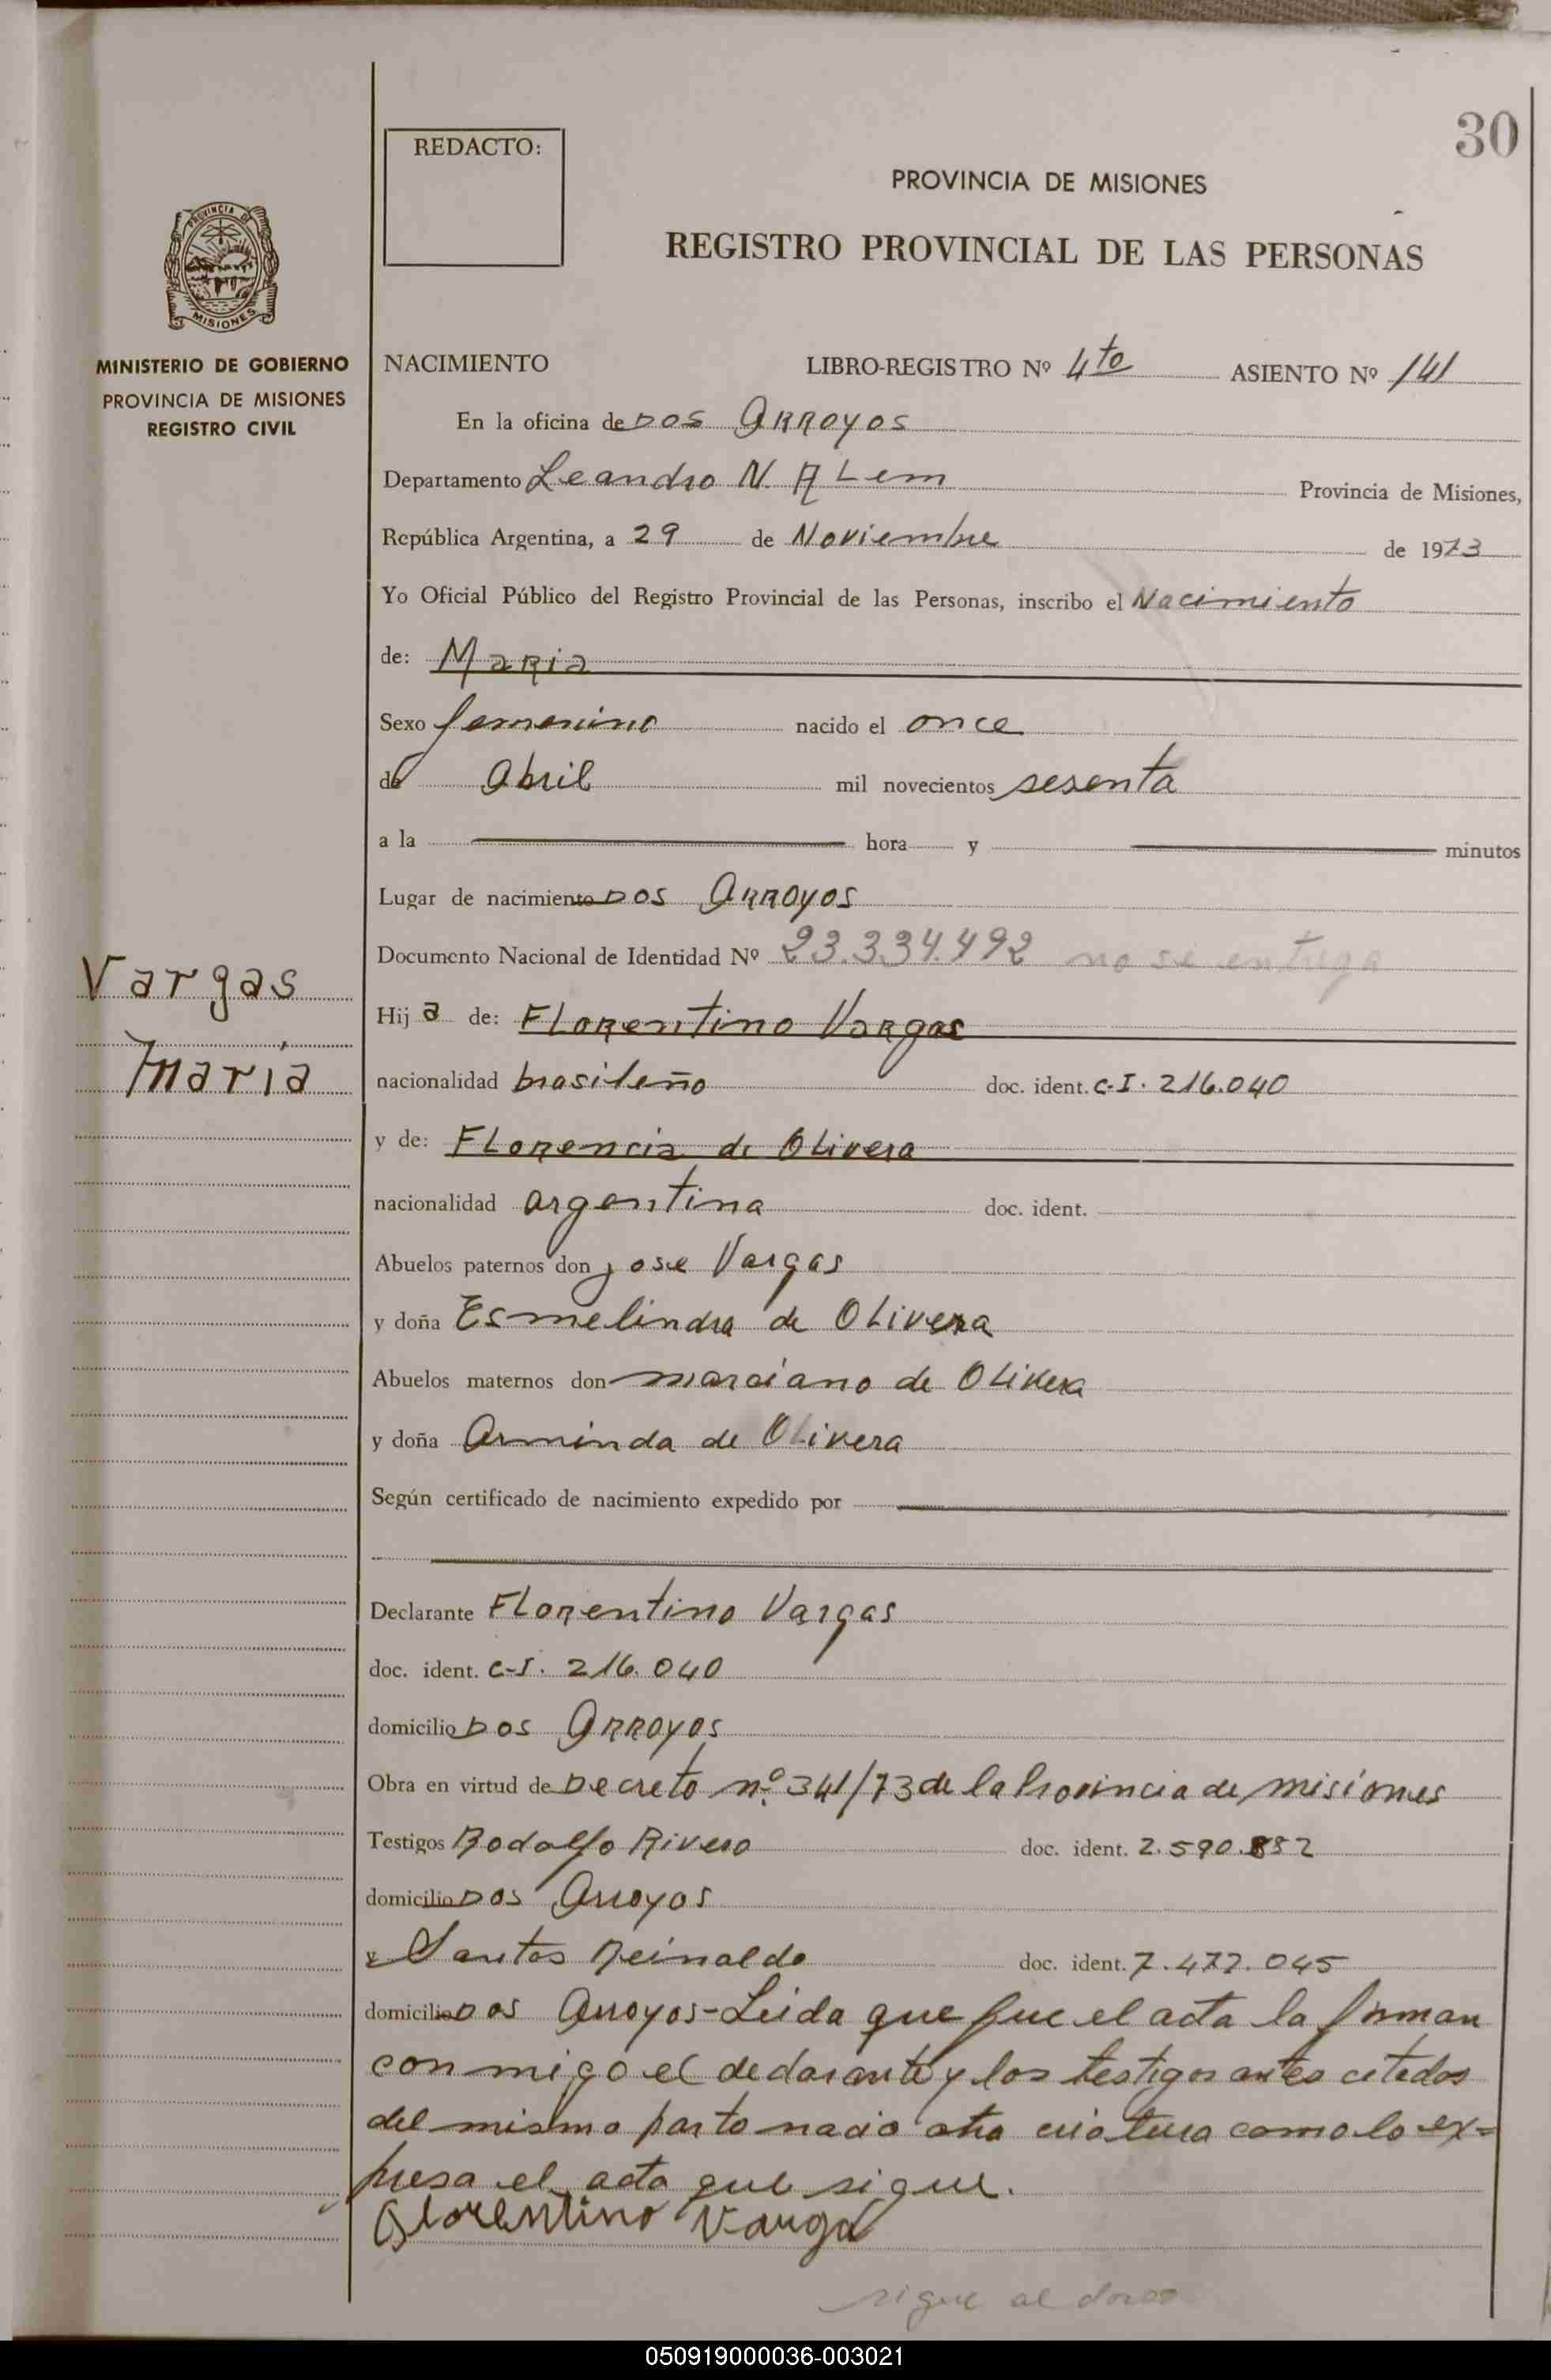 30
REDACTO:
PROVINCIA DE MISIONES
REGISTRO PROVINCIAL DE LAS PERSONAS
PROVINCIA DE
MISIONES
MINISTERIO DE GOBIERNO
PROVINCIA DE MISIONES
REGISTRO CIVIL
NACIMIENTO LIBRO-REGISTRO Nº 4to ASIENTO Nº 141
En la oficina de DOS ARROYOS
Departamento Leandro N. ALem Provincia de Misiones,
República Argentina, a 29 de Noviembre de 1973
Yo Oficial Público del Registro Provincial de las Personas, inscribo el Nacimiento
de: Maria
Sexo femenino nacido el once
de Abril mil novecientos sesenta
a la hora y minutos
Lugar de nacimiento DOS ARROYOS
Documento Nacional de Identidad Nº 23.334.492 no se entrega
Vargas
Maria
Hij a de: Florentino Vargas
nacionalidad brasileño doc. ident. C.I. 216.040
y de: FLorencia de Olivera
nacionalidad argentina doc. ident.
Abuelos paternos don jose Vargas
y doña Esmelindra de OLivera
Abuelos maternos don marciano de OLivera
y doña Arminda de OLivera
Según certificado de nacimiento expedido por
Declarante FLorentino Vargas
doc. ident. C-I. 216.040
domicilio DOS ARROYOS
Obra en virtud de Decreto nº. 341/73 de la Provincia de misiones
Testigos Rodolfo Rivero doc. ident. 2.590.852
domicilio DOS Arroyos
y Santos Reinaldo doc. ident. 7.477.045
domicilio DOS Arroyos-Leida que fue el acta la firman
conmigo el declarante y los testigos antes citados
del mismo parto nació otra criatura como lo ex=
presa el acta que sigue.
Florentino Varga
sigue al dorso
050919000036-003021